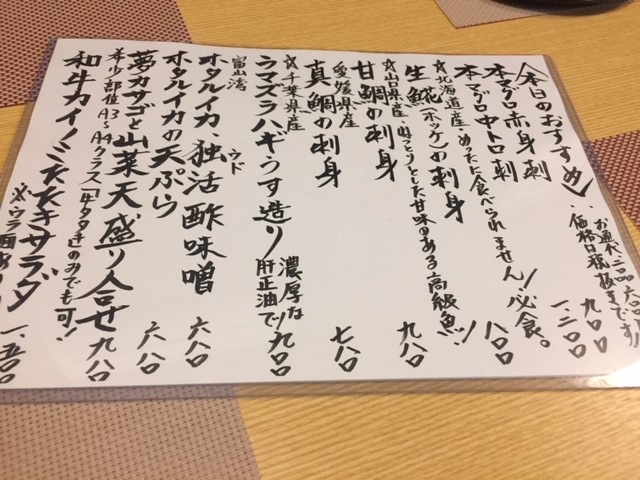 今日のおすすめ
お通し代二品六〇〇
価格は税抜きです!
本マグロ赤身刺 九〇〇
本マグロ中トロ刺 一、二〇〇
☆北海道産、めったに食べられません!必食。
生𩸽(ホッケ)の刺身 八〇〇
☆山口県産、ねっとりとした甘味のある高級魚!!
甘鯛の刺身 九八〇
愛媛県産
真鯛の刺身 七八〇
☆千葉県産
ウマズラハギうす造り 濃厚な肝正油で! 九〇〇
富山湾
ホタルイカ、独活酢味噌 六八〇
ウド
ホタルイカの天ぷら 六八〇
夢カサゴと山菜天盛り合せ 九八〇
希少部位A3〜A4クラス「牛タタキ」のみでも可!!
和牛カイノミたたきサラダ 一、五〇〇
※ウラ面あり